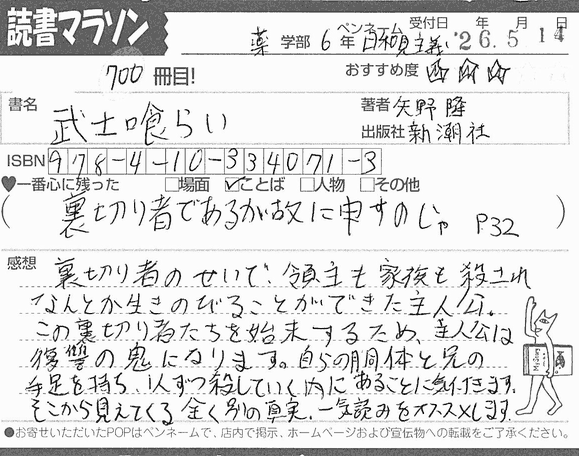 読書マラソン
薬 学部 6 年 ペンネーム 日和見主義 受付日 '26年 5月 14日
700 冊目! おすすめ度 ☆☆☆
書名 武士喰らい 著者 矢野隆
出版社 新潮社
ISBN 978-4-10-334071-3
♥一番心に残った □場面 ☑ことば □人物 □その他
(裏切り者であるが故に申すのじゃ P32)
感想 裏切り者のせいで、領主も家族も殺され
なんとか生きのびることができた主人公。
この裏切り者たちを始末するため、主人公は
復讐の鬼になります。自らの胴体と兄の
手足を持ち、1人ずつ殺していく内にあることに気付きます。
そこから見えてくる全く別の真実、一気読みをオススメします。
●お寄せいただいたPOPはペンネームで、店内で掲示、ホームページおよび宣伝物への転載をご了承ください。